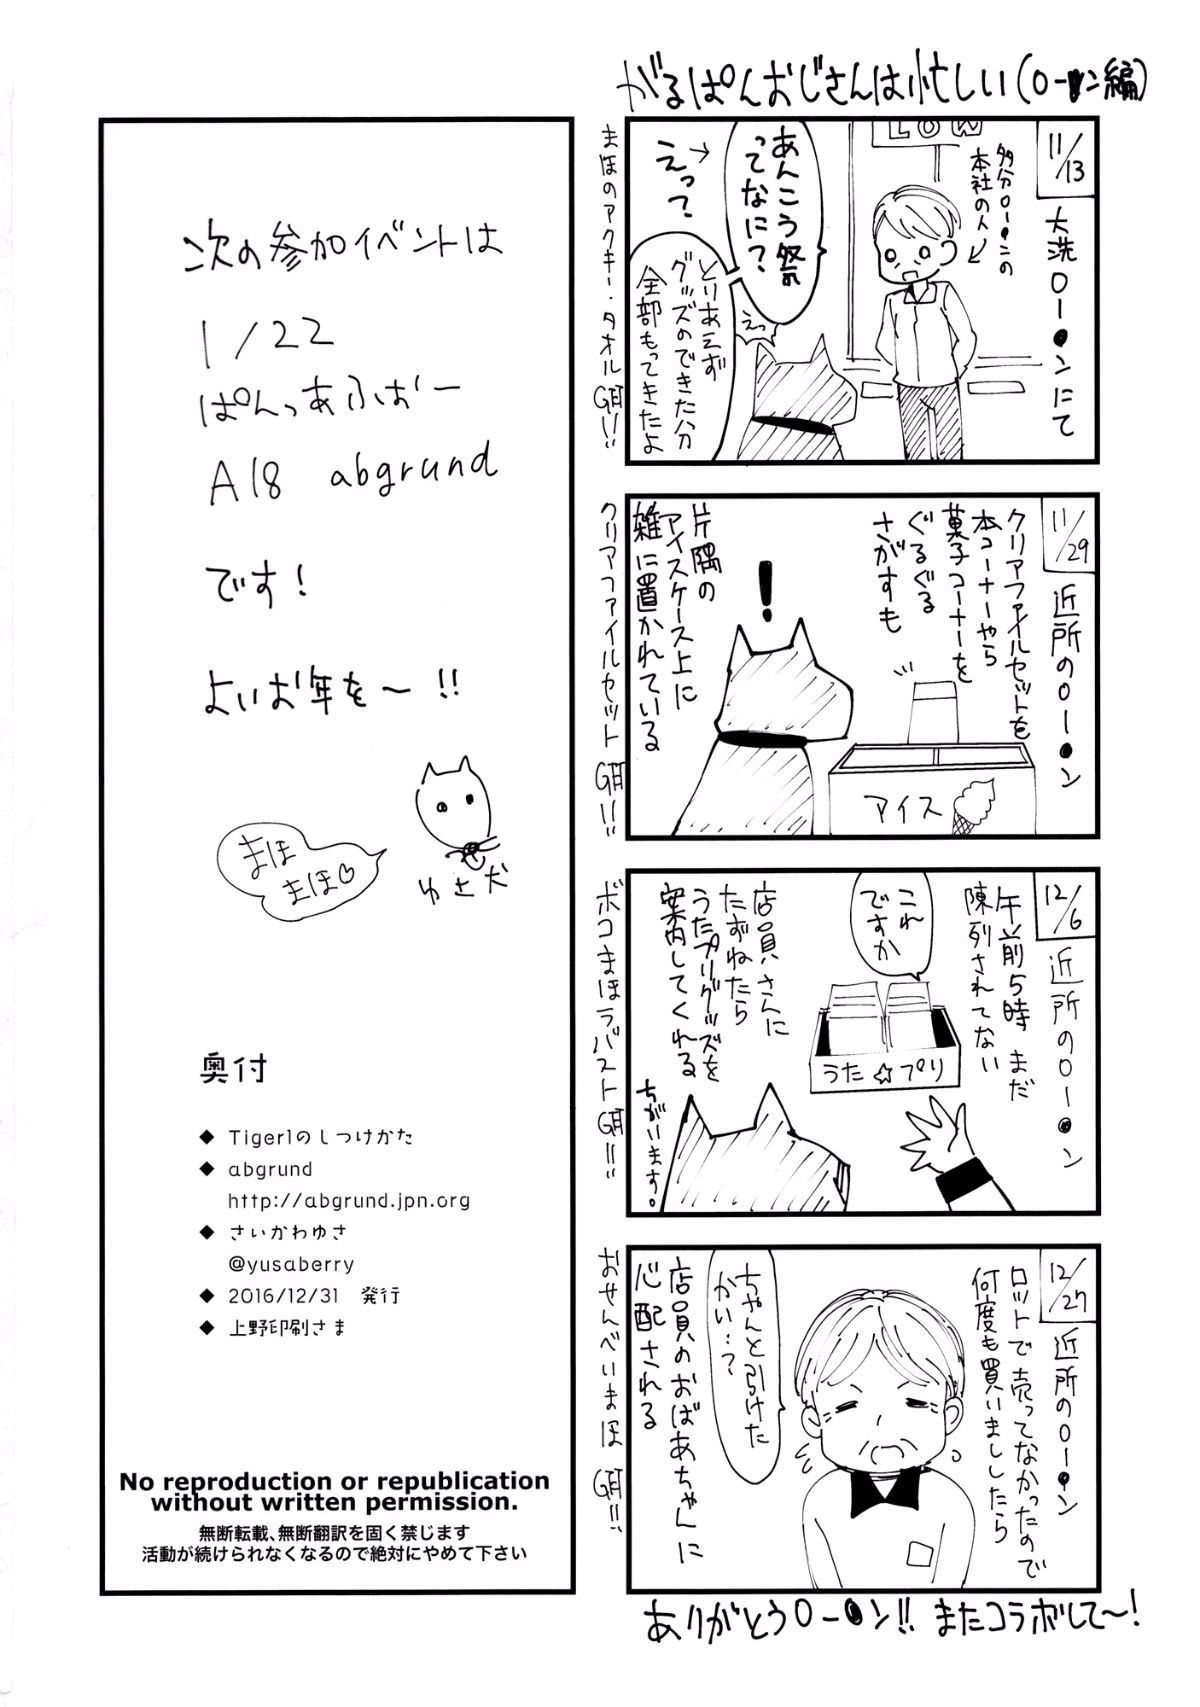 がるぱんおじさんは忙しい(ロー●ン編)
11/13
大洗ロー●ンにて
多分ロー●ンの
本社の人
LOW
あんこう祭
ってなに?
えって?
えっ
とりあえず
グッズのできた分
全部もってきたよ
まほのアクキー・タオルGET!!
11/29
近所のロー●ン
クリアファイルセットを
本コーナーやら
菓子コーナーを
ぐるぐる
さがすも
!
片隅の
アイスケース上に
雑に置かれている
アイス
クリアファイルセット GET!!!
12/6
近所のロー●ン
午前5時 まだ
陳列されてない
これ
ですか
店員さんに
たずねたら
うたプリグッズを
案内してくれる
うた☆プリ
ちがいます。
ボコまほラバストGET!!!
12/27
近所のロー●ン
ロットで売ってなかったので
何度も買いまししたら
ちゃんと引けた
かい…?
店員のおばあちゃんに
心配される
おせんべいまほ GET!!!
ありがとうロー●ン!! またコラボして~!
次の参加イベントは
1/22
ぱんっあふぉー
A18 abgrund
です!
よいお年を~!!
まほ
まほ♡
ゆさ犬
奥付
◆ Tiger1のしつけかた
◆ abgrund
http://abgrund.jpn.org
◆ さいかわゆさ
@yusaberry
◆ 2016/12/31 発行
◆ 上野印刷さま
No reproduction or republication
without written permission.
無断転載、無断翻訳を固く禁じます
活動が続けられなくなるので絶対にやめて下さい